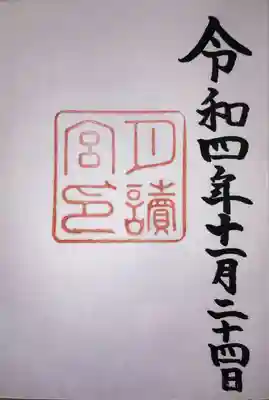 令和四年十一月二十四日
月讀
宮印